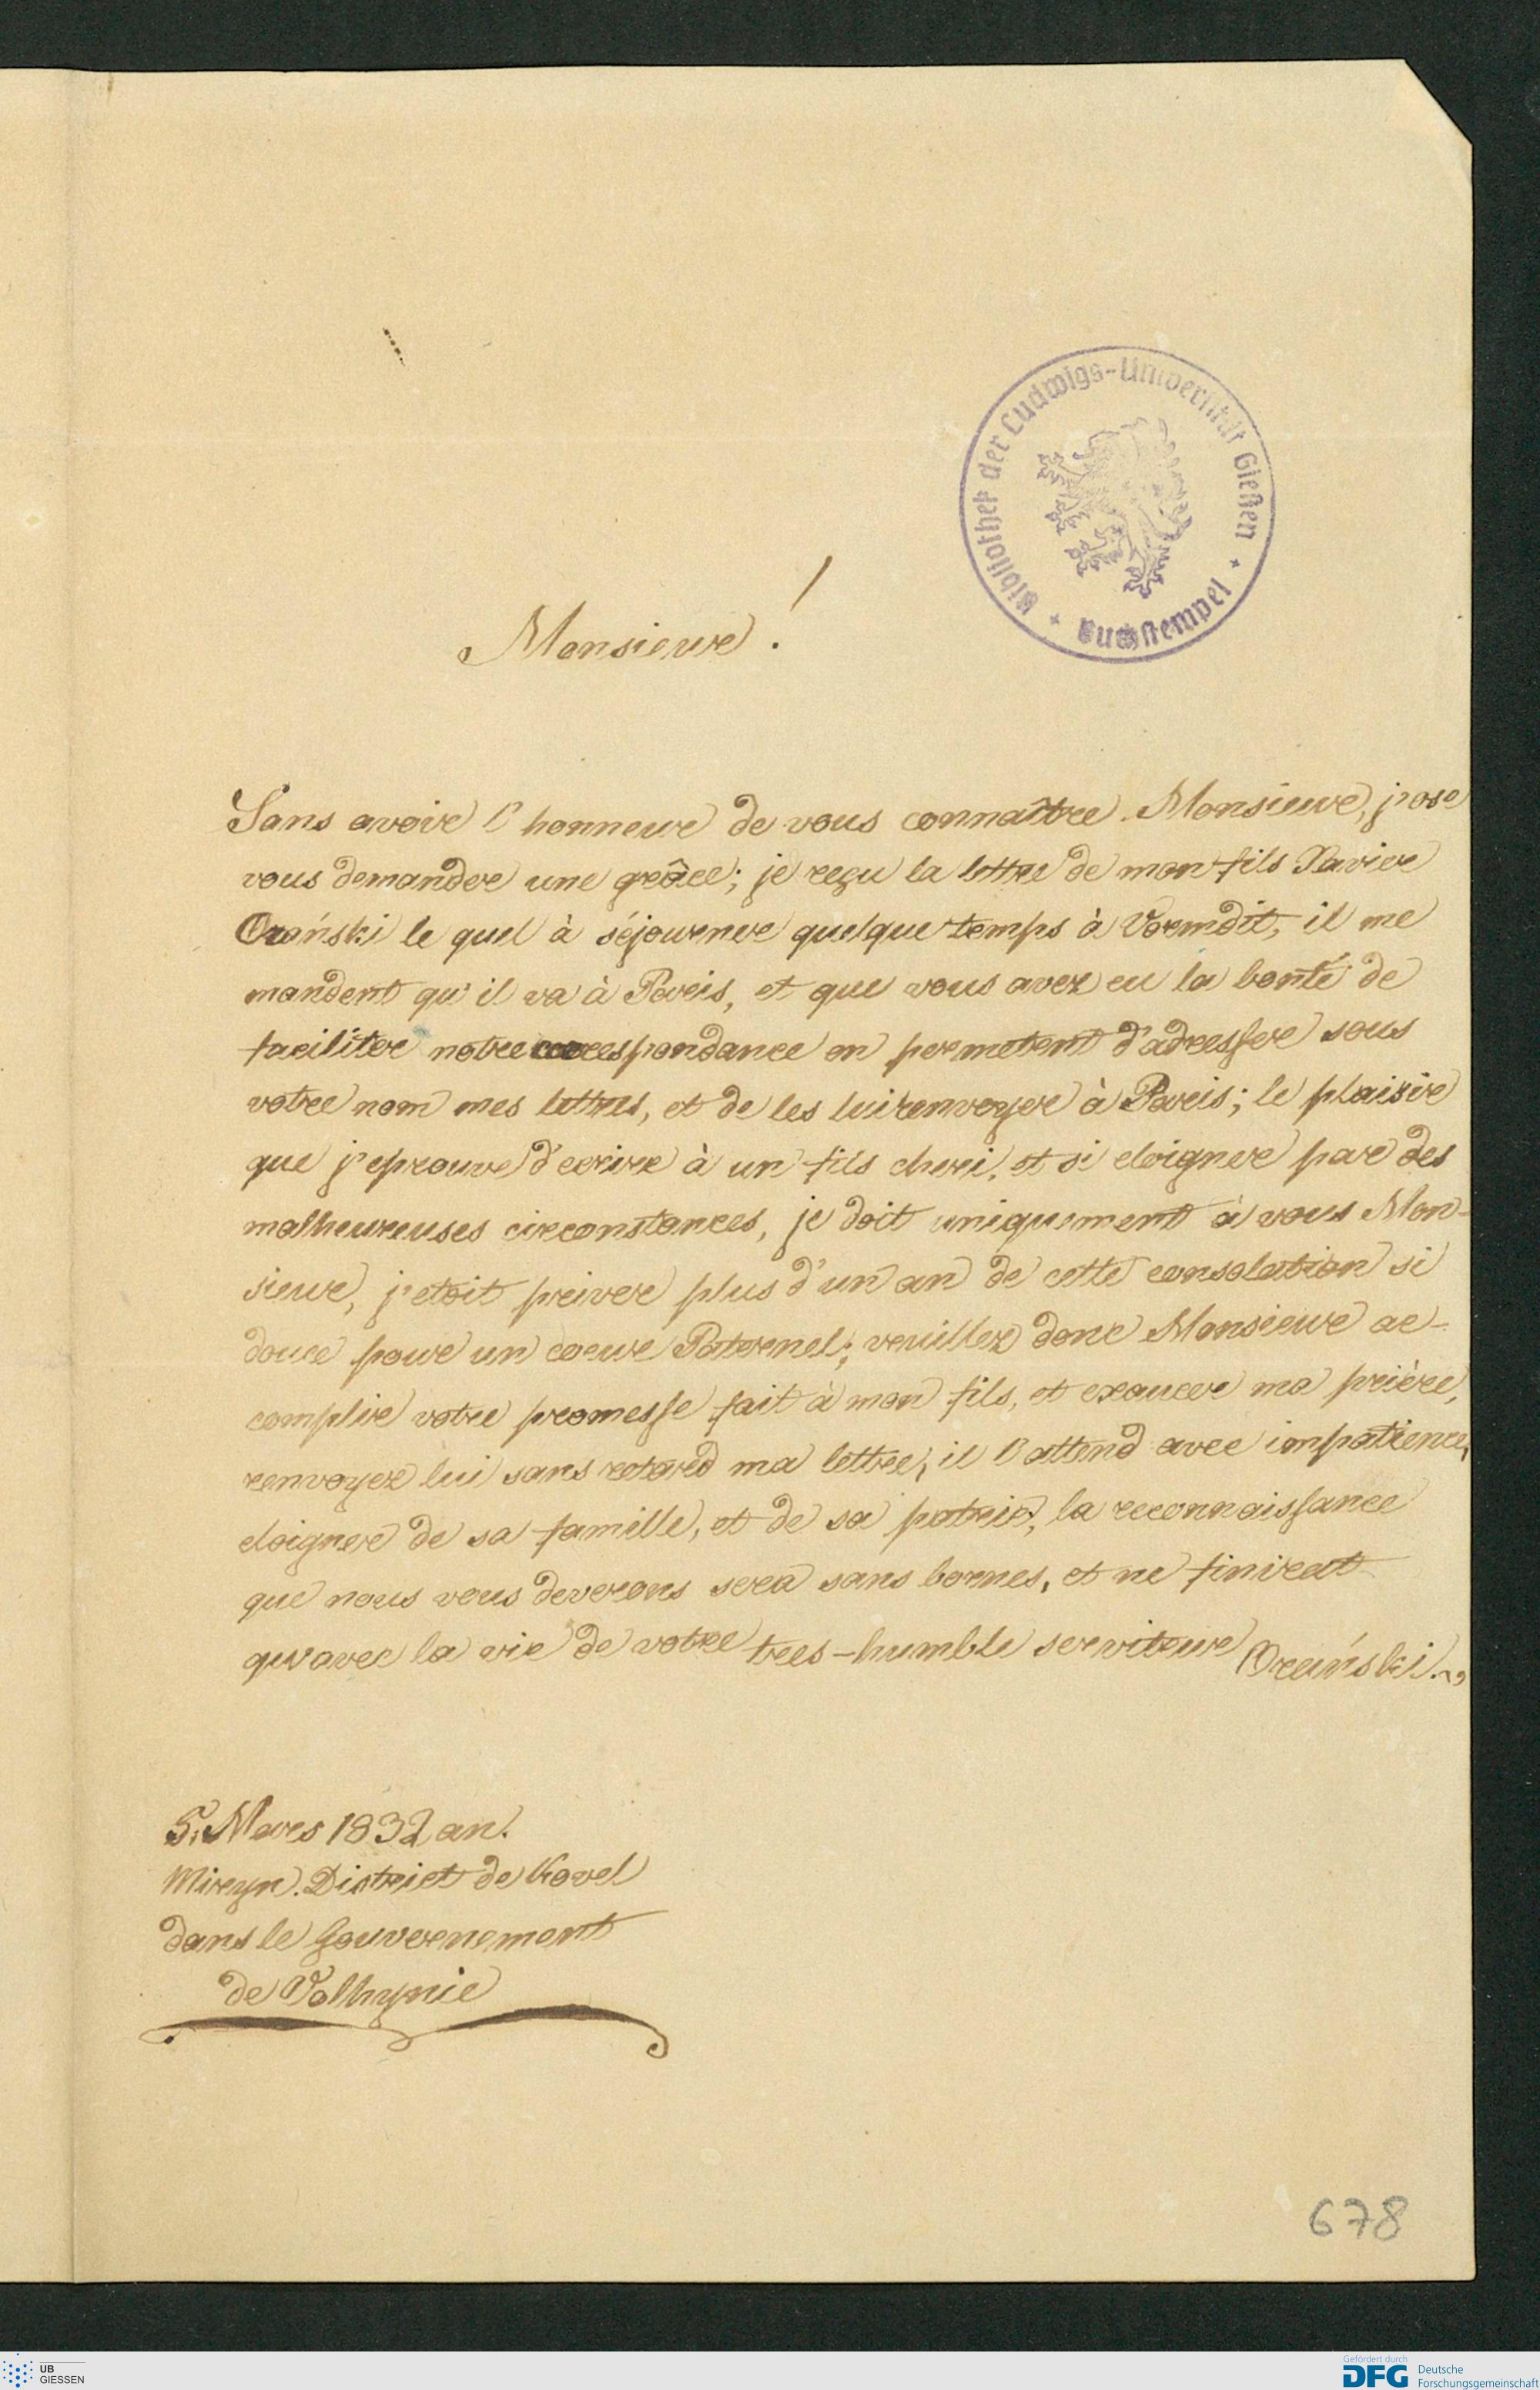 Bibliothek der Ludwigs-Universität Gießen
Buchstempel
Monsieur!
Sans avoir l'honneur de vous connaître Monsieur, j'ose
vous demander une grâce; je reçu la lettre de mon fils Xavier
le quel à séjourner quelque temps à il me
mandent qu'il va à Paris, et que vous avez eu la bonté de
faciliter notre correspondance en permetent d'adresser sous
votre nom mes lettres, et de les lui renvoyer à Paris; le plaisir
que j'eprouve d'ecrire à un fils cheri, et si eloigner par des
malheureuses circonstances, je doit uniquement à vous Mon-
sieur, j'etoit priver plus d'un an de cette consolation si
douce pour un coeur Paternel; veuillez donc Monsieur ac-
complir votre promesse fait à mon fils, et exaucer ma prière,
renvoyez lui sans retard ma lettre, il l'attend avec impatience,
eloigner de sa famille, et de sa patrie, la reconnaissance
que nous vous deverons sera sans bornes, et ne finirat
qu'avec la vie de votre tres-humble serviteur
5. Mars 1832 an.
Miryn. District de Kovel
dans le Gouvernement
de Volhynie
678
UB
GIESSEN
Gefördert durch
DFG Deutsche
Forschungsgemeinschaft